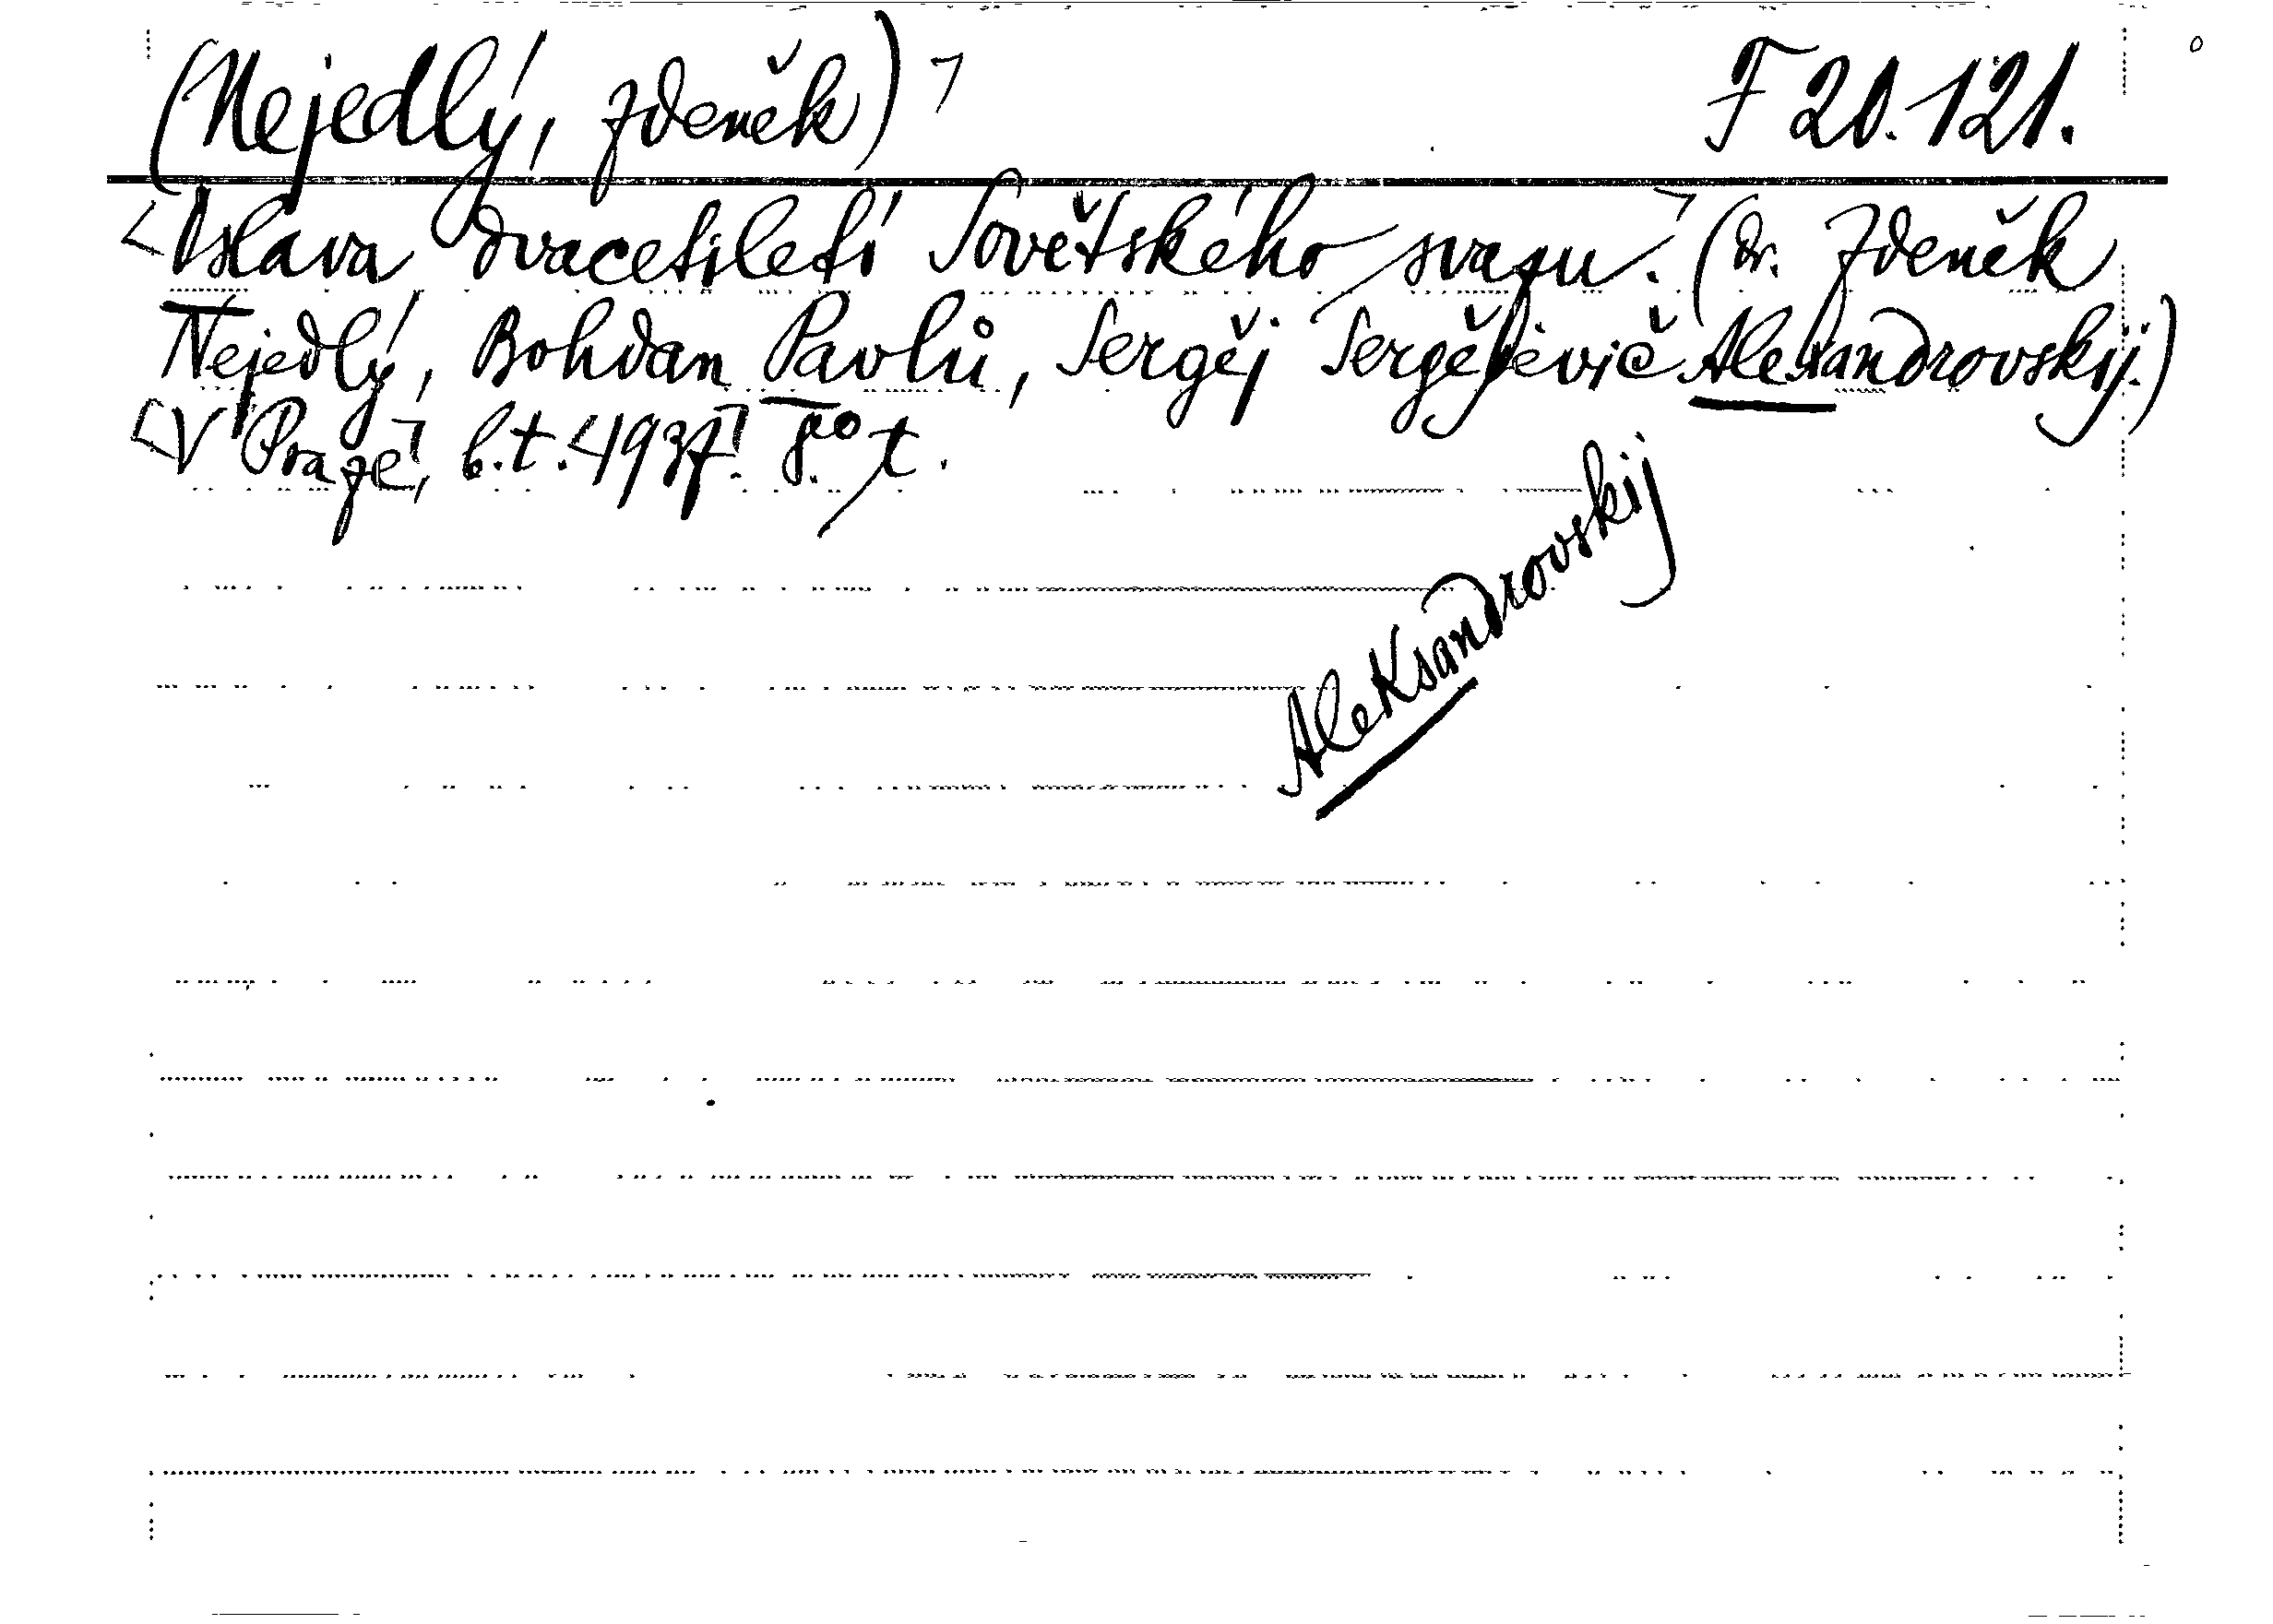 (Nejedlý, Zdeněk) ┐ F 20.121.
<Oslava dvacetiletí Sovětského svazu.┐ (dr. Zdeněk
Nejedlý, Bohdan Pavlů, Sergěj Sergějevič Alexandrovskij.)
<V Praze┐, b.t. 1937. 8° t.
Aleksandrovskij